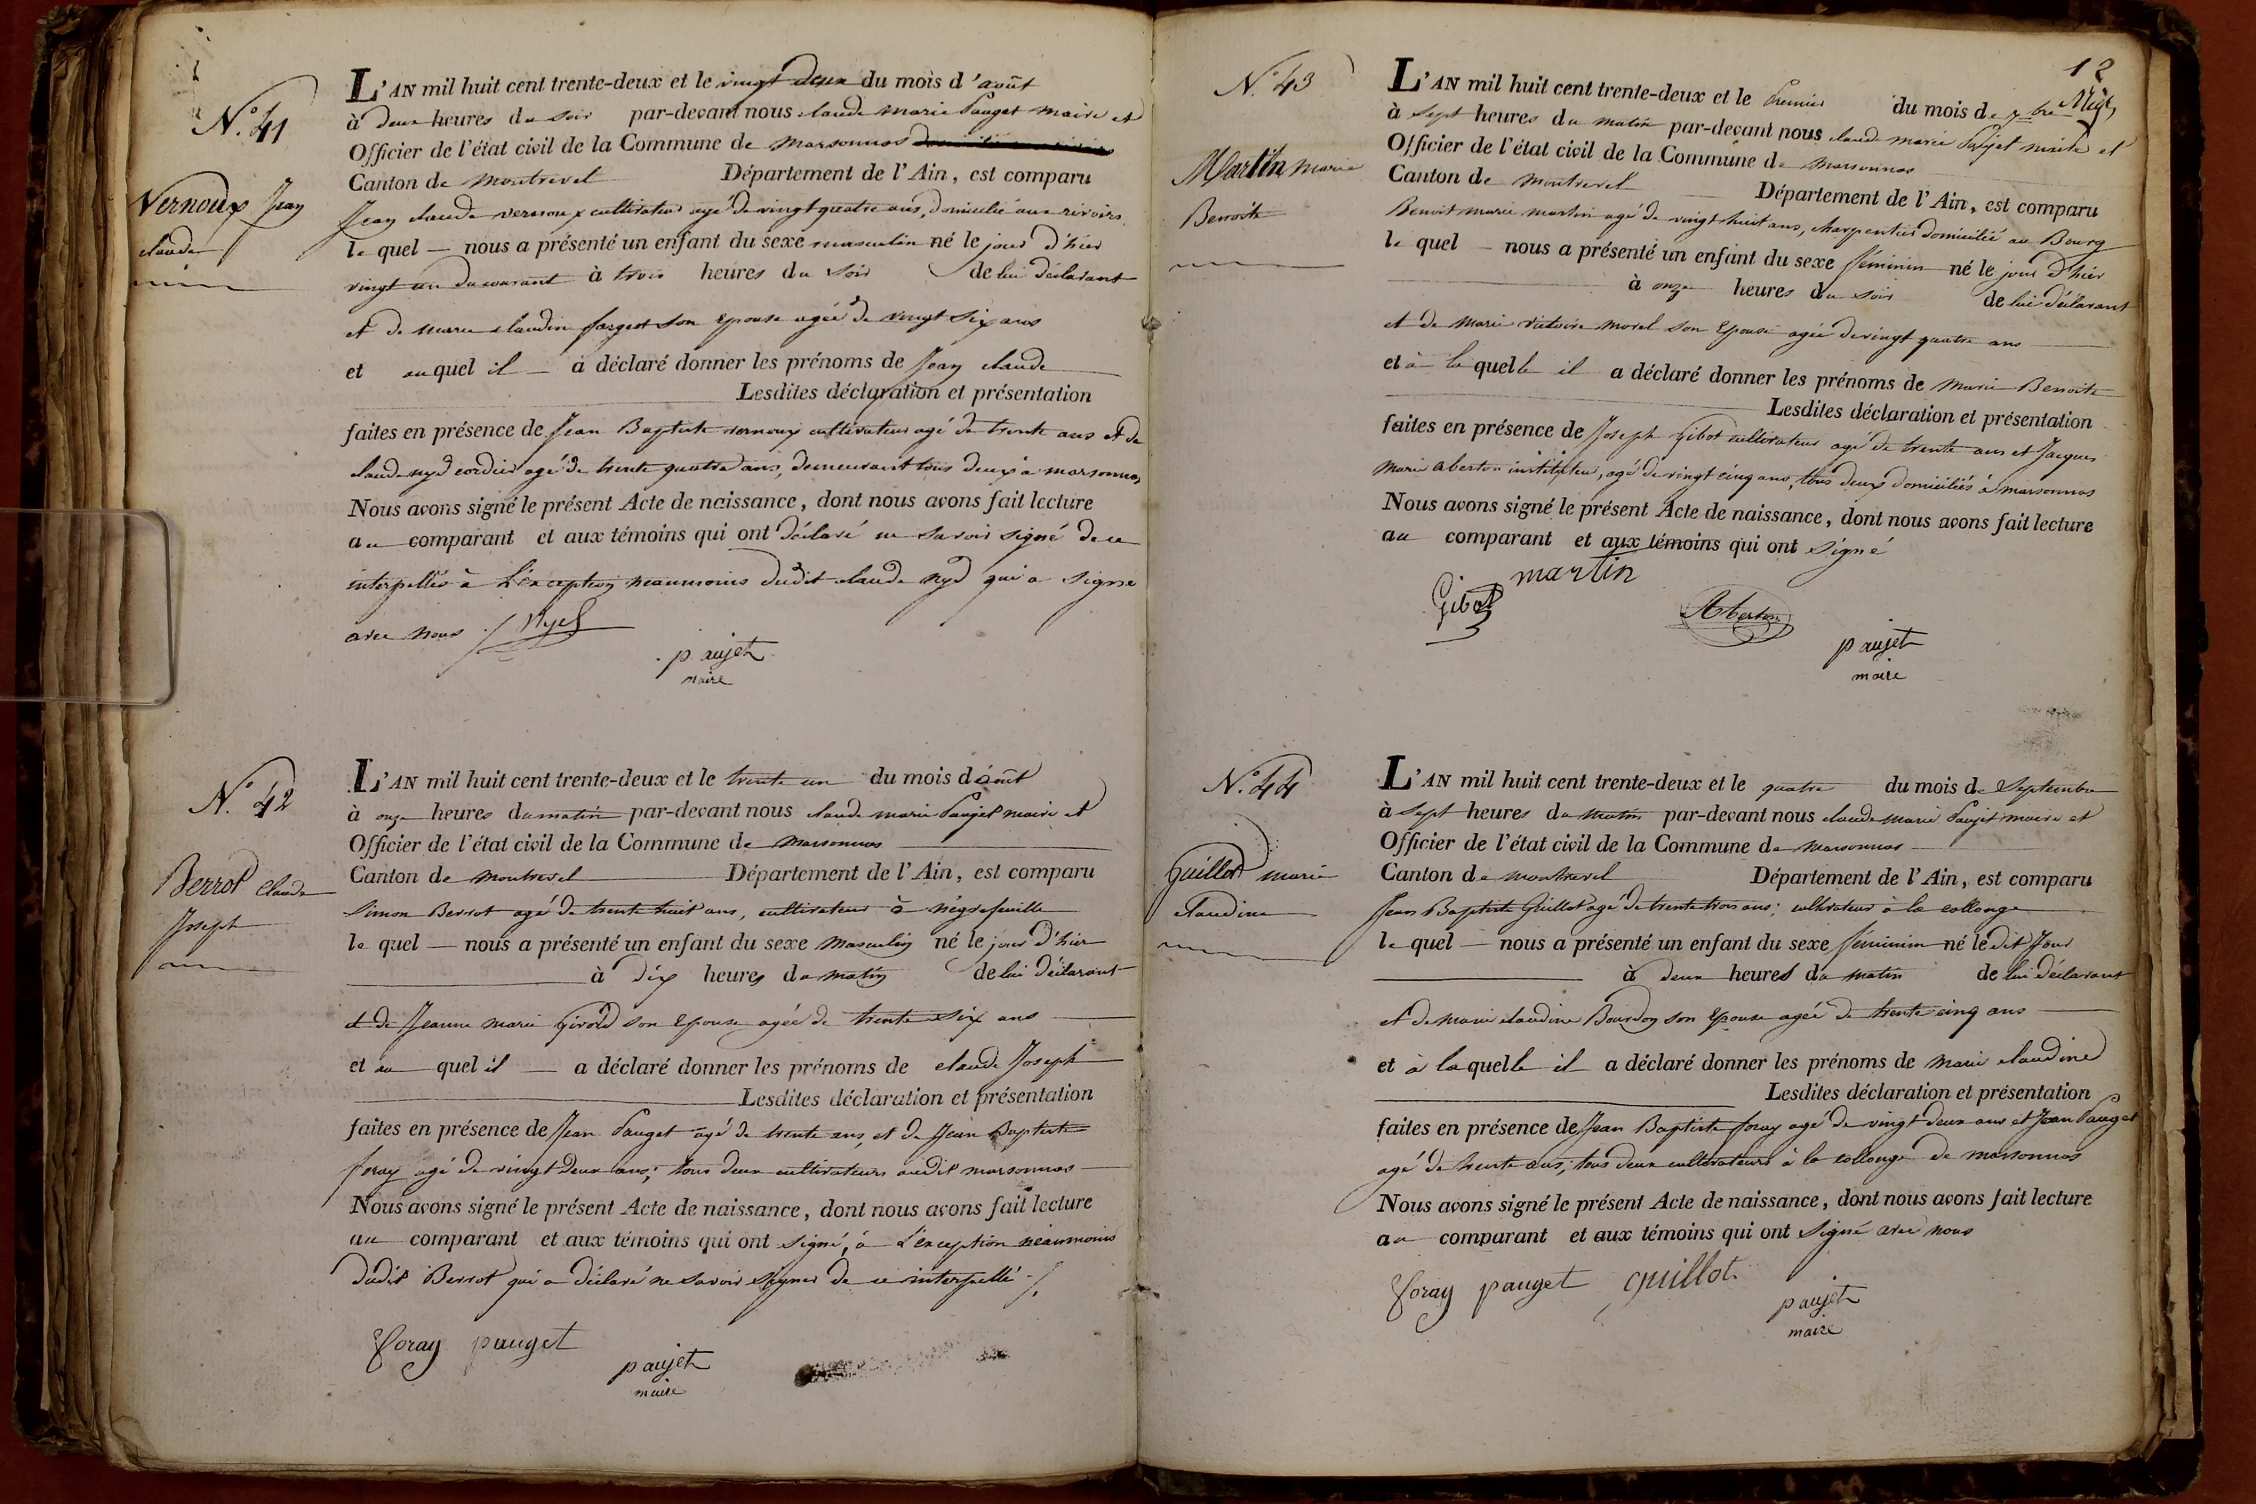 N.° 41
Vernoux Jean
claude
L'AN mil huit cent trente-deux et le vingt deux du mois d'août
à deux heures du soir par-devant nous claude marie Pauget maire et
Officier de l'état civil de la Commune de marsonnas
Canton de montrevel Département de l'Ain, est comparu
Jean claude vernoux cultivateur agé de vingt quatre ans, domicilié aux rivoirs
le quel — nous a présenté un enfant du sexe masculin né le jour d'hier
vingt un du courant à trois heures du soir de lui déclarant
et de marie claudine farget son Epouse agée de vingt six ans
et au quel il — a déclaré donner les prénoms de Jean claude
Lesdites déclaration et présentation
faites en présence de Jean Baptiste vernoux cultivateur agé de trente ans et de
claude nyd cordier agé de trente quatre ans, demeurant tous deux à marsonnas
Nous avons signé le présent Acte de naissance, dont nous avons fait lecture
au comparant et aux témoins qui ont déclaré ne savoir signé de ce
interpellés à L'exception neanmoins dudit claude nyd qui a signé
avec nous ./. Nyd
paujet
maire
N.° 42
Berrot claude
Joseph
L'AN mil huit cent trente-deux et le trente un du mois d'août
à onze heures du matin par-devant nous claude marie Pauget maire et
Officier de l'état civil de la Commune de marsonnas
Canton de montrevel Département de l'Ain, est comparu
Simon Berrot agé de trente huit ans, cultivateur à négrefeuille
le quel — nous a présenté un enfant du sexe masculin né le jour d'hier
à dix heures du matin de lui déclarant
et de Jeanne marie Girold son Epouse agée de trente six ans
et au quel il — a déclaré donner les prénoms de claude Joseph
Lesdites déclaration et présentation
faites en présence de Jean Pauget agé de trente ans, et de Jean Baptiste
foray agé de vingt deux ans; tous deux cultivateurs audit marsonnas
Nous avons signé le présent Acte de naissance, dont nous avons fait lecture
au comparant et aux témoins qui ont signé, à L'exception neanmoins
dudit Berrot qui a déclaré ne savoir signer de ce interpellé ./.
foray pauget
paujet
maire
12
N.° 43
Martin marie
Benoite
L'AN mil huit cent trente-deux et le Premier du mois de 7bre
à sept heures du matin par-devant nous claude marie Paujet maire et
Officier de l'état civil de la Commune de marsonnas
Canton de montrevel Département de l'Ain, est comparu
Benoit marie martin agé de vingt huit ans, charpentier domicilié au Bourg
le quel — nous a présenté un enfant du sexe féminin né le jour d'hier
à onze heures du soir de lui déclarant
et de marie victoire morel son Epouse agée de vingt quatre ans
et à la quelle il a déclaré donner les prénoms de marie Benoite
Lesdites déclaration et présentation
faites en présence de Joseph Gibot cultivateur agé de trente ans et Jacques
marie aberton instituteur, agé de vingt cinq ans, tous deux domiciliés à marsonnas
Nous avons signé le présent Acte de naissance, dont nous avons fait lecture
au comparant et aux témoins qui ont signé
martin
Gibot Aberton
paujet
maire
N.° 44
Guillot marie
claudine
L'AN mil huit cent trente-deux et le quatre du mois de Septembre
à sept heures du matin par-devant nous claude marie Paujet maire et
Officier de l'état civil de la Commune de marsonnas
Canton de montrevel Département de l'Ain, est comparu
Jean Baptiste Guillot agé de trente trois ans; cultivateur à la collonge
le quel — nous a présenté un enfant du sexe féminin né le dit Jour
à deux heures du matin de lui déclarant
et de marie claudine Bourdon son Epouse agée de trente cinq ans
et à la quelle il a déclaré donner les prénoms de marie claudine
Lesdites déclaration et présentation
faites en présence de Jean Baptiste foray agé de vingt deux ans et Jean Pauget
agé de trente ans; tous deux cultivateurs à la collonge de marsonnas
Nous avons signé le présent Acte de naissance, dont nous avons fait lecture
au comparant et aux témoins qui ont signé avec nous
foray pauget guillot
paujet
maire